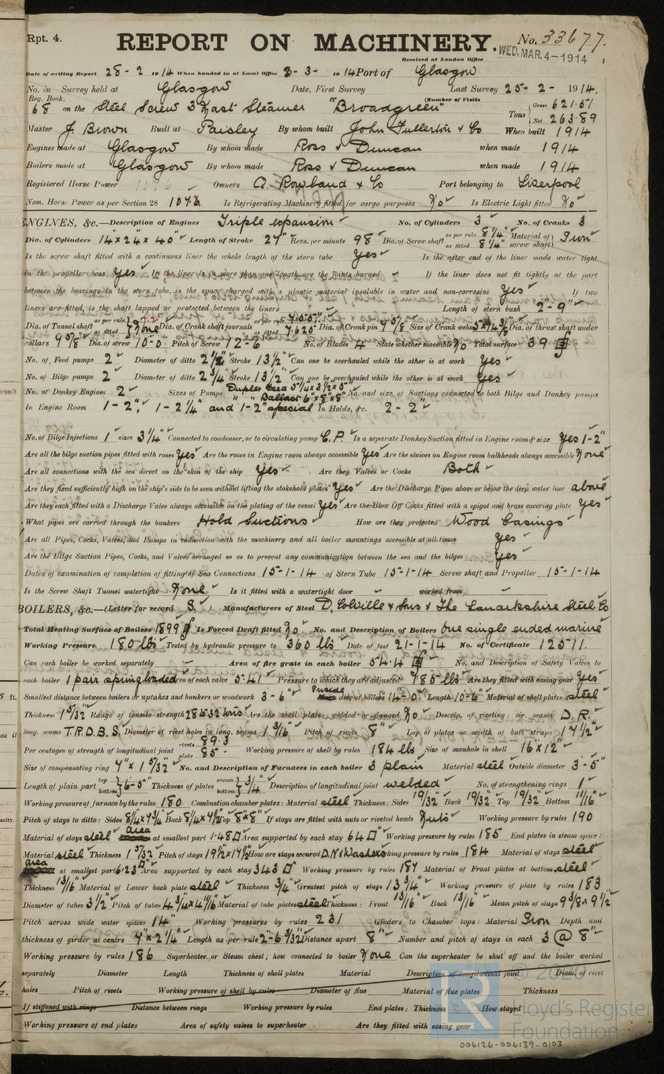 Rpt. 4.
REPORT ON MACHINERY.
No. 33677.
Received at London Office WED. MAR. 4 - 1914
Date of writing Report 28-2 1914 When handed in at Local Office 2-3- 1914 Port of Glasgow
No. in Survey held at Glasgow Date, First Survey Last Survey 25-2- 1914.
Reg. Book. (Number of Visits
68 on the Steel Screw 3 Mast Steamer "Broadgreen" Tons Gross 621.51 Net 263.89
Master J. Brown Built at Paisley By whom built John Fullerton & Co When built 1914
Engines made at Glasgow By whom made Ross & Duncan when made 1914
Boilers made at Glasgow By whom made Ross & Duncan when made 1914
Registered Horse Power Owners A. Rowland & Co Port belonging to Liverpool
Nom. Horse Power as per Section 28 Is Refrigerating Machinery fitted for cargo purposes No Is Electric Light fitted No
ENGINES, &c.—Description of Engines Triple expansion No. of Cylinders 3 No. of Cranks 3
Dia. of Cylinders 14" x 24" x 40" Length of Stroke 27" Revs. per minute 98 Dia. of Screw shaft as per rule 8 1/4" as fitted 8 1/4" Material of screw shaft Iron
Is the screw shaft fitted with a continuous liner the whole length of the stern tube Yes Is the after end of the liner made water tight
in the propeller boss Yes If the liner is in more than one length are the joints burned If the liner does not fit tightly at the part
between the bearings in the stern tube, is the space charged with a plastic material insoluble in water and non-corrosive Yes If two
liners are fitted, is the shaft lapped or protected between the liners Length of stern bush 2-9"
Dia. of Tunnel shaft as per rule as fitted None Dia. of Crank shaft journals as per rule as fitted 7.625" Dia. of Crank pin 7 5/8 Size of Crank webs Dia. of thrust shaft under
collars 9 5/8" Dia. of screw 10-0" Pitch of Screw No. of Blades 4 State whether moveable No Total surface 39
No. of Feed pumps 2 Diameter of ditto 2 1/2" Stroke 13 1/2" Can one be overhauled while the other is at work Yes
No. of Bilge pumps 2 Diameter of ditto 2 3/4" Stroke 13 1/2" Can one be overhauled while the other is at work Yes
No. of Donkey Engines 2 Sizes of Pumps Duplex Feed 5 1/4 x 3 1/2 x 5" Ballast 6" x 8" x 8" No. and size of Suctions connected to both Bilge and Donkey pumps
In Engine Room 1-2", 1-2 1/4" and 1-2" special In Holds, &c. 2-2"
No. of Bilge Injections 1 sizes 3 1/4" Connected to condenser, or to circulating pump C.P. Is a separate Donkey Suction fitted in Engine room & size Yes 1-2"
Are all the bilge suction pipes fitted with roses Yes Are the roses in Engine room always accessible Yes Are the sluices on Engine room bulkheads always accessible None
Are all connections with the sea direct on the skin of the ship Yes Are they Valves or Cocks Both
Are they fixed sufficiently high on the ship's side to be seen without lifting the stokehold plates Yes Are the Discharge Pipes above or below the deep water line above
Are they each fitted with a Discharge Valve always accessible on the plating of the vessel Yes Are the Blow Off Cocks fitted with a spigot and brass covering plate Yes
What pipes are carried through the bunkers Hold Suctions How are they protected Wood Casings
Are all Pipes, Cocks, Valves, and Pumps in connection with the machinery and all boiler mountings accessible at all times Yes
Are the Bilge Suction Pipes, Cocks, and Valves arranged so as to prevent any communication between the sea and the bilges Yes
Dates of examination of completion of fitting of Sea Connections 15-1-14 of Stern Tube 15-1-14 Screw shaft and Propeller 15-1-14
Is the Screw Shaft Tunnel watertight None Is it fitted with a watertight door worked from
BOILERS, &c.—(Letter for record S.) Manufacturers of Steel D. Colville & Sons & The Lanarkshire Steel Co
Total Heating Surface of Boilers 1899 Is Forced Draft fitted No No. and Description of Boilers One single ended marine
Working Pressure 180 lbs Tested by hydraulic pressure to 360 lbs Date of test 21-1-14 No. of Certificate 12511.
Can each boiler be worked separately Area of fire grate in each boiler 54.4 No. and Description of Safety Valves to
each boiler 1 pair spring loaded Area of each valve 5.41 Pressure to which they are adjusted 185 lbs Are they fitted with easing gear Yes
Smallest distance between boilers or uptakes and bunkers or woodwork 3-6" Inside dia. of boilers 14-0" Length 10-6" Material of shell plates steel
Thickness 1 5/32 Range of tensile strength 28 to 32 tons Are the shell plates welded or flanged No Descrip. of riveting: cir. seams D.R.
long. seams T.R.D.B.S. Diameter of rivet holes in long. seams 1 3/16" Pitch of rivets 8" Lap of plates or width of butt straps 17 1/2"
Per centages of strength of longitudinal joint rivets 89.3 plate 85 Working pressure of shell by rules 184 lbs Size of manhole in shell 16" x 12"
Size of compensating ring 7" x 1 5/32" No. and Description of Furnaces in each boiler 3 plain Material steel Outside diameter 3-5"
Length of plain part top bottom 6-5" Thickness of plates crown bottom 3/4" Description of longitudinal joint welded No. of strengthening rings 1
Working pressure of furnace by the rules 180 Combustion chamber plates: Material steel Thickness: Sides 19/32" Back 19/32" Top 19/32" Bottom 11/16"
Pitch of stays to ditto: Sides Back 8 1/4 x 7 1/2 Top 8" x 8" If stays are fitted with nuts or riveted heads Nuts Working pressure by rules 190
Material of stays steel Area at smallest part 1.48 Area supported by each stay 64 Working pressure by rules 185 End plates in steam space:
Material steel Thickness 1 5/32 Pitch of stays 19 1/2 x 17 1/2 How are stays secured D.N & Washers Working pressure by rules 184 Material of stays steel
area at smallest part 6.23 Area supported by each stay 343 Working pressure by rules 187 Material of Front plates at bottom steel
Thickness 13/16 Material of Lower back plate steel Thickness 3/4" Greatest pitch of stays 13 3/4" Working pressure of plate by rules 183
Diameter of tubes 3 1/2" Pitch of tubes 4 3/4 x 4 4/16 Material of tube plates steel Thickness: Front 13/16" Back 13/16" Mean pitch of stays 9 3/8 x 9 1/2
Pitch across wide water spaces 14" Working pressures by rules 231 Girders to Chamber tops: Material Iron Depth and
thickness of girder at centre 7" x 2 1/4" Length as per rule 2-6 9/32 Distance apart 8" Number and pitch of stays in each 3 @ 8"
Working pressure by rules 186 Superheater or Steam chest; how connected to boiler None Can the superheater be shut off and the boiler worked
separately Diameter Length Thickness of shell plates Material Description of longitudinal joint Diam. of rivet
holes Pitch of rivets Working pressure of shell by rules Diameter of flue Material of flue plates Thickness
If stiffened with rings Distance between rings Working pressure by rules End plates: Thickness How stayed
Working pressure of end plates Area of safety valves to superheater Are they fitted with easing gear
© 2020
Lloyd's Register
Foundation
006126-006139-0103